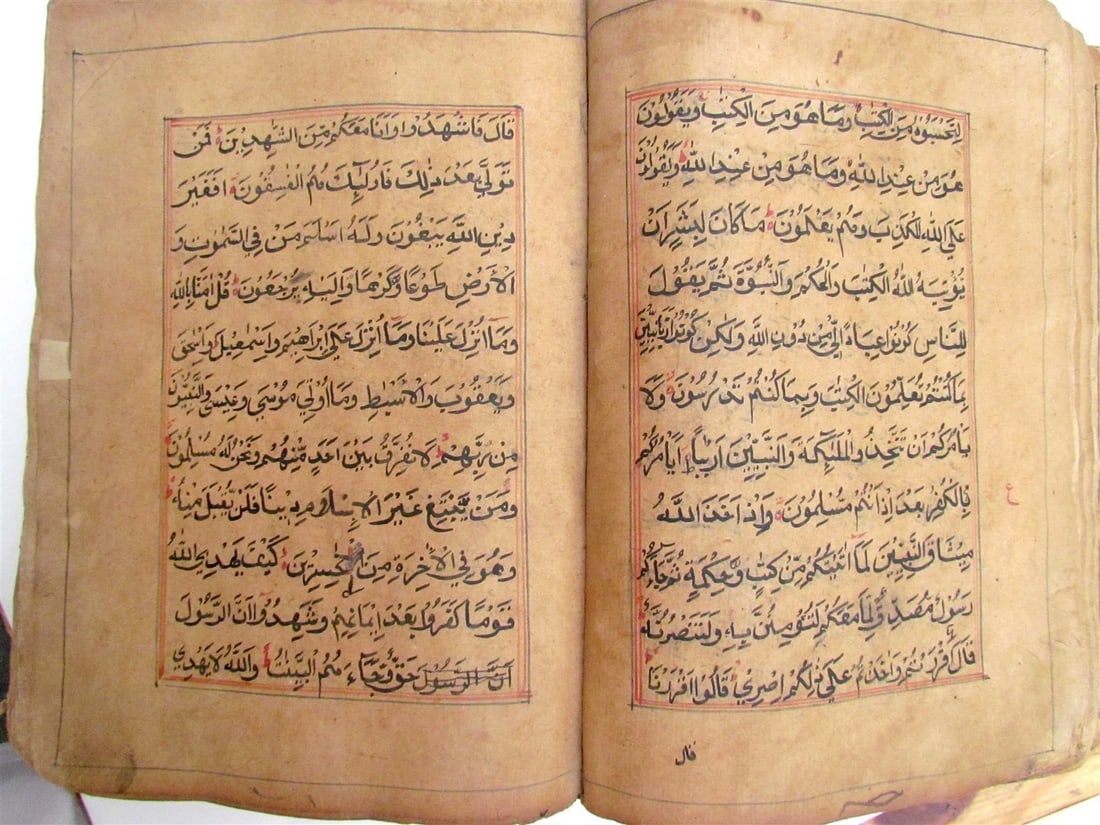 لِتَحْسَبُوهُ مِنَ الْكِتٰبِ وَمَا هُوَ مِنَ الْكِتٰبِ وَيَقُولُونَ
هُوَ مِنْ عِنْدِ اللّٰهِ وَمَا هُوَ مِنْ عِنْدِ اللّٰهِ وَيَقُولُونَ
عَلَى اللّٰهِ الْكَذِبَ وَهُمْ يَعْلَمُوْنَ مَا كَانَ لِبَشَرٍ اَنْ
يُؤْتِيَهُ اللّٰهُ الْكِتٰبَ وَالْحُكْمَ وَالنُّبُوَّةَ ثُمَّ يَقُوْلَ
لِلنَّاسِ كُوْنُوْا عِبَادًا لِّيْ مِنْ دُوْنِ اللّٰهِ وَلٰكِنْ كُوْنُوْا رَبَّانِيّٖنَ
بِمَا كُنْتُمْ تُعَلِّمُوْنَ الْكِتٰبَ وَبِمَا كُنْتُمْ تَدْرُسُوْنَ وَلَا
يَاْمُرَكُمْ اَنْ تَتَّخِذُوا الْمَلٰٓئِكَةَ وَالنَّبِيّٖنَ اَرْبَابًا اَيَاْمُرُكُمْ
بِالْكُفْرِ بَعْدَ اِذْ اَنْتُمْ مُسْلِمُوْنَ وَاِذْ اَخَذَ اللّٰهُ
مِيْثَاقَ النَّبِيّٖنَ لَمَا اٰتَيْتُكُمْ مِنْ كِتٰبٍ وَحِكْمَةٍ ثُمَّ جَآءَكُمْ
رَسُوْلٌ مُصَدِّقٌ لِمَا مَعَكُمْ لَتُؤْمِنُنَّ بِهٖ وَلَتَنْصُرُنَّهُ
قَالَ ءَاَقْرَرْتُمْ وَاَخَذْتُمْ عَلٰى ذٰلِكُمْ اِصْرِيْ قَالُوْا اَقْرَرْنَا
قال
ع
قَالَ فَاشْهَدُوْا وَاَنَا مَعَكُمْ مِنَ الشّٰهِدِيْنَ فَمَنْ
تَوَلّٰى بَعْدَ ذٰلِكَ فَاُولٰٓئِكَ هُمُ الْفٰسِقُوْنَ اَفَغَيْرَ
دِيْنِ اللّٰهِ يَبْغُوْنَ وَلَهُ اَسْلَمَ مَنْ فِي السَّمٰوٰتِ وَ
الْاَرْضِ طَوْعًا وَكَرْهًا وَاِلَيْهِ يُرْجَعُوْنَ قُلْ اٰمَنَّا بِاللّٰهِ
وَمَا اُنْزِلَ عَلَيْنَا وَمَا اُنْزِلَ عَلٰى اِبْرَاهِيْمَ وَاِسْمٰعِيْلَ وَاِسْحٰقَ
وَيَعْقُوْبَ وَالْاَسْبَاطِ وَمَا اُوْتِيَ مُوْسٰى وَعِيْسٰى وَالنَّبِيُّوْنَ
مِنْ رَبِّهِمْ لَا نُفَرِّقُ بَيْنَ اَحَدٍ مِنْهُمْ وَنَحْنُ لَهُ مُسْلِمُوْنَ
وَمَنْ يَبْتَغِ غَيْرَ الْاِسْلَامِ دِيْنًا فَلَنْ يُقْبَلَ مِنْهُ
وَهُوَ فِي الْاٰخِرَةِ مِنَ الْخٰسِرِيْنَ كَيْفَ يَهْدِي اللّٰهُ
قَوْمًا كَفَرُوْا بَعْدَ اِيْمَانِهِمْ وَشَهِدُوْا اَنَّ الرَّسُوْلَ
اَنَّ الرَّسُوْلَ حَقٌّ وَجَآءَهُمُ الْبَيِّنٰتُ وَاللّٰهُ لَا يَهْدِي